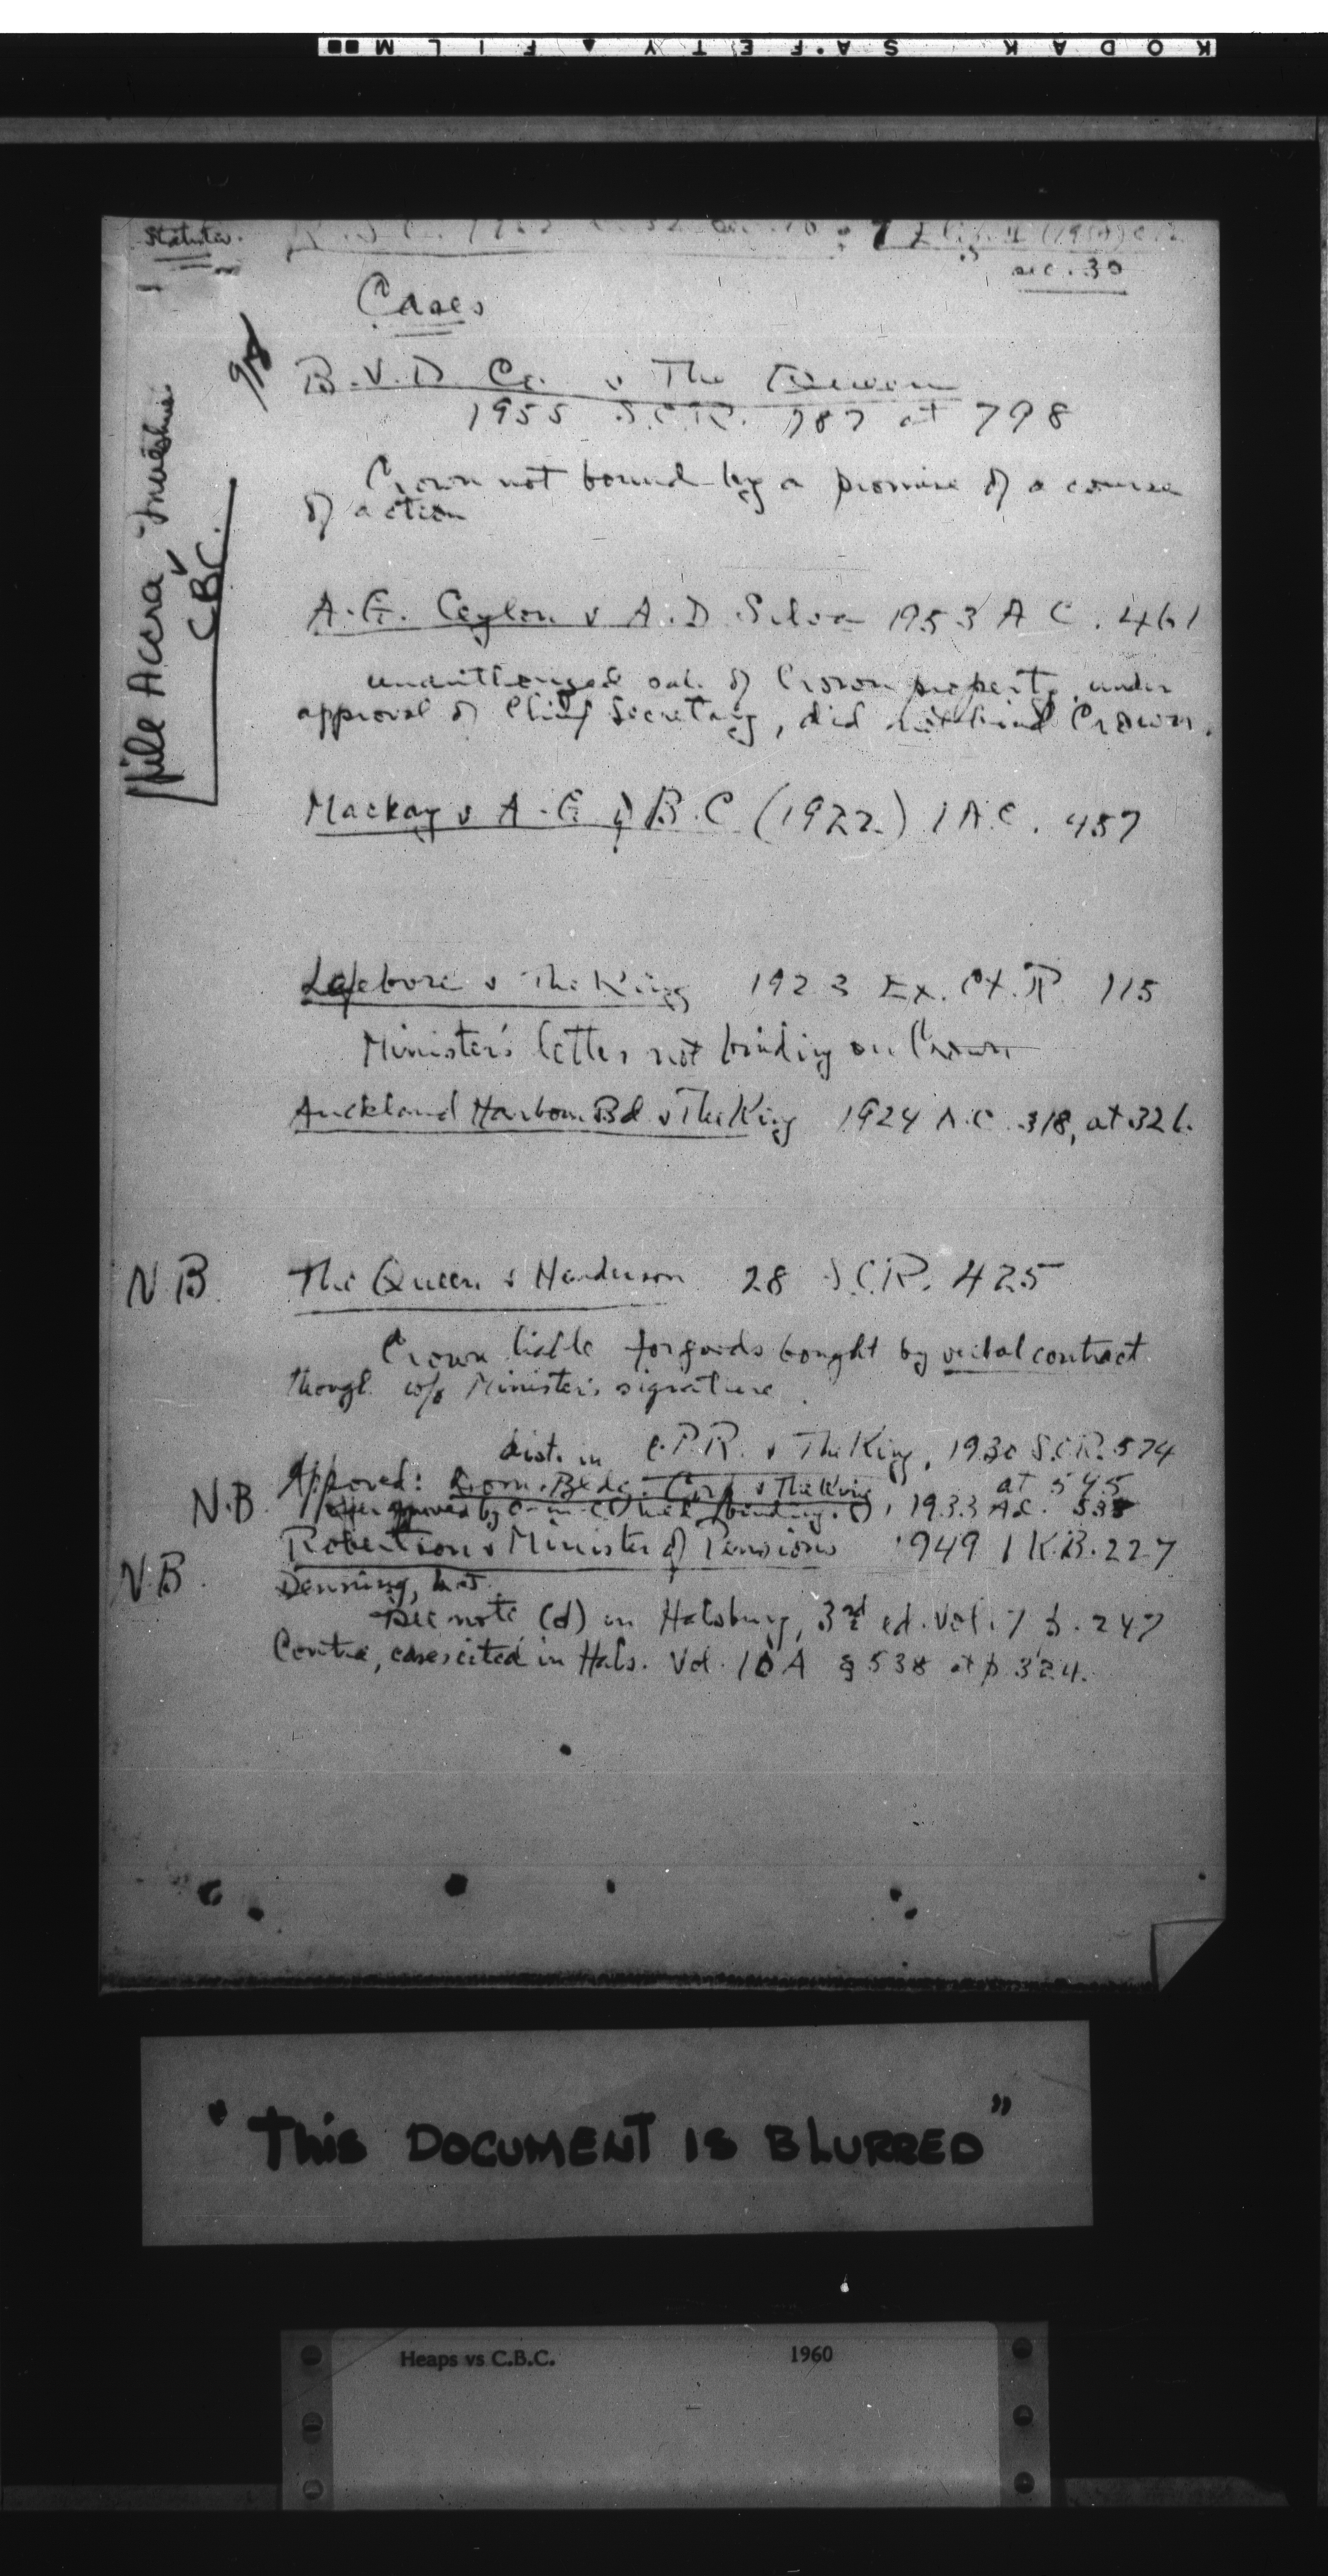 KODAK SAFETY FILM
Statutes.
sec. 30
Cases
file Accra Investment v C.B.C.
B.V.D. Co. v The Queen
1955 S.C.R. 787 at 798
Crown not bound by a promise of a course
of action
A.G. Ceylon v A.D. Silva 1953 A C. 461
unauthorized sale of Crown property, under
approval of Chief Secretary, did not bind Crown.
Mackay v A.G of B.C (1922) 1 A.C. 457
Lefebvre v The King 1923 Ex. Ct. R. 115
Minister's letter not binding on Crown
Auckland Harbour Bd v The King 1924 A.C. 318, at 326.
N.B. The Queen v Henderson 28 S.C.R. 425
Crown liable for goods bought by verbal contract
though w/o Minister's signature.
dist. in C.P.R. v The King, 1930 S.C.R. 574
at 545
N.B. Approved: Dom. Bldg. Corp v The King
approved by binding. 1933 A.C. 533
N.B. Robertson v Minister of Pensions 1949 1 K.B. 227
Denning,
See note (d) in Halsbury, 3rd ed. Vol. 7 p. 247
Contra, cases cited in Hals. Vol. 10A § 538 at p 324.
"THIS DOCUMENT IS BLURRED"
Heaps vs C.B.C. 1960